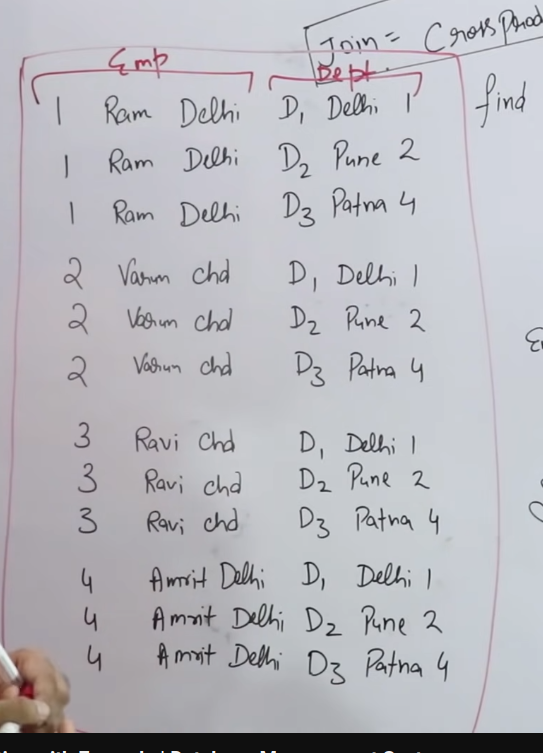 Join = Cross Prod
Emp Dept.
find
1 Ram Delhi D1 Delhi 1
1 Ram Delhi D2 Pune 2
1 Ram Delhi D3 Patna 4
2 Varun chd D1 Delhi 1
2 Varun chd D2 Pune 2
2 Varun chd D3 Patna 4
3 Ravi chd D1 Delhi 1
3 Ravi chd D2 Pune 2
3 Ravi chd D3 Patna 4
4 Amrit Delhi D1 Delhi 1
4 Amrit Delhi D2 Pune 2
4 Amrit Delhi D3 Patna 4